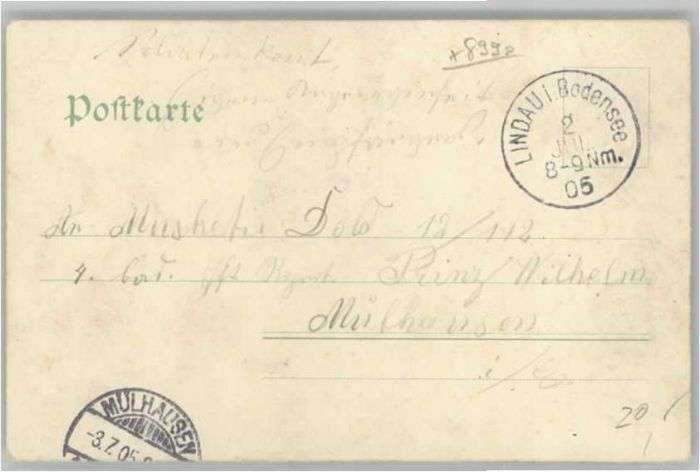 Soldatenkarte
+8992
Postkarte
LINDAU i. Bodensee
2
JUL.
8-9Nm.
05
An Musketier Dold 12/112
4. bad. Inft Regmt. Prinz Wilhelm
Mülhausen
i/E.
MÜLHAUSEN
-3.7.05.
20